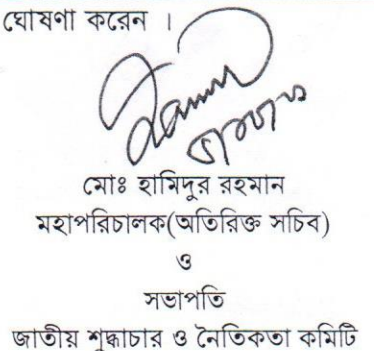 ঘোষণা করেন ।
মোঃ হামিদুর রহমান
মহাপরিচালক(অতিরিক্ত সচিব)
ও
সভাপতি
জাতীয় শুদ্ধাচার ও নৈতিকতা কমিটি